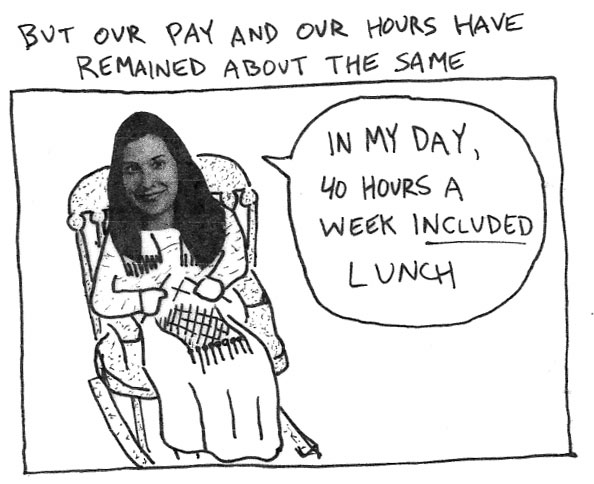 BUT OUR PAY AND OUR HOURS HAVE
REMAINED ABOUT THE SAME
IN MY DAY,
40 HOURS A
WEEK INCLUDED
LUNCH